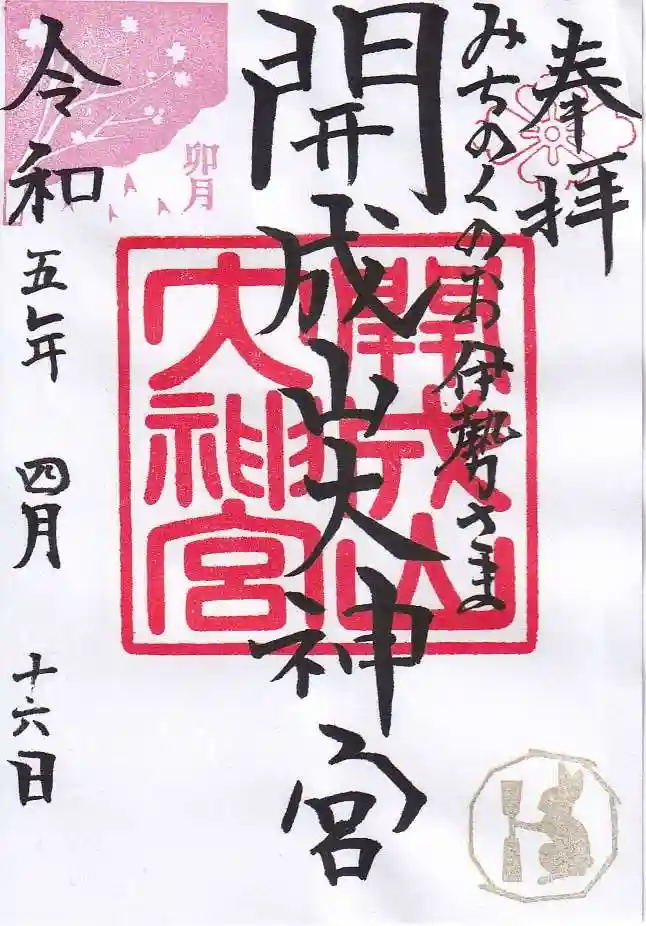 奉拝
みちのくのお伊勢さま
開成山大神宮
開成山
大神宮
卯月
令和五年 四月 十六日